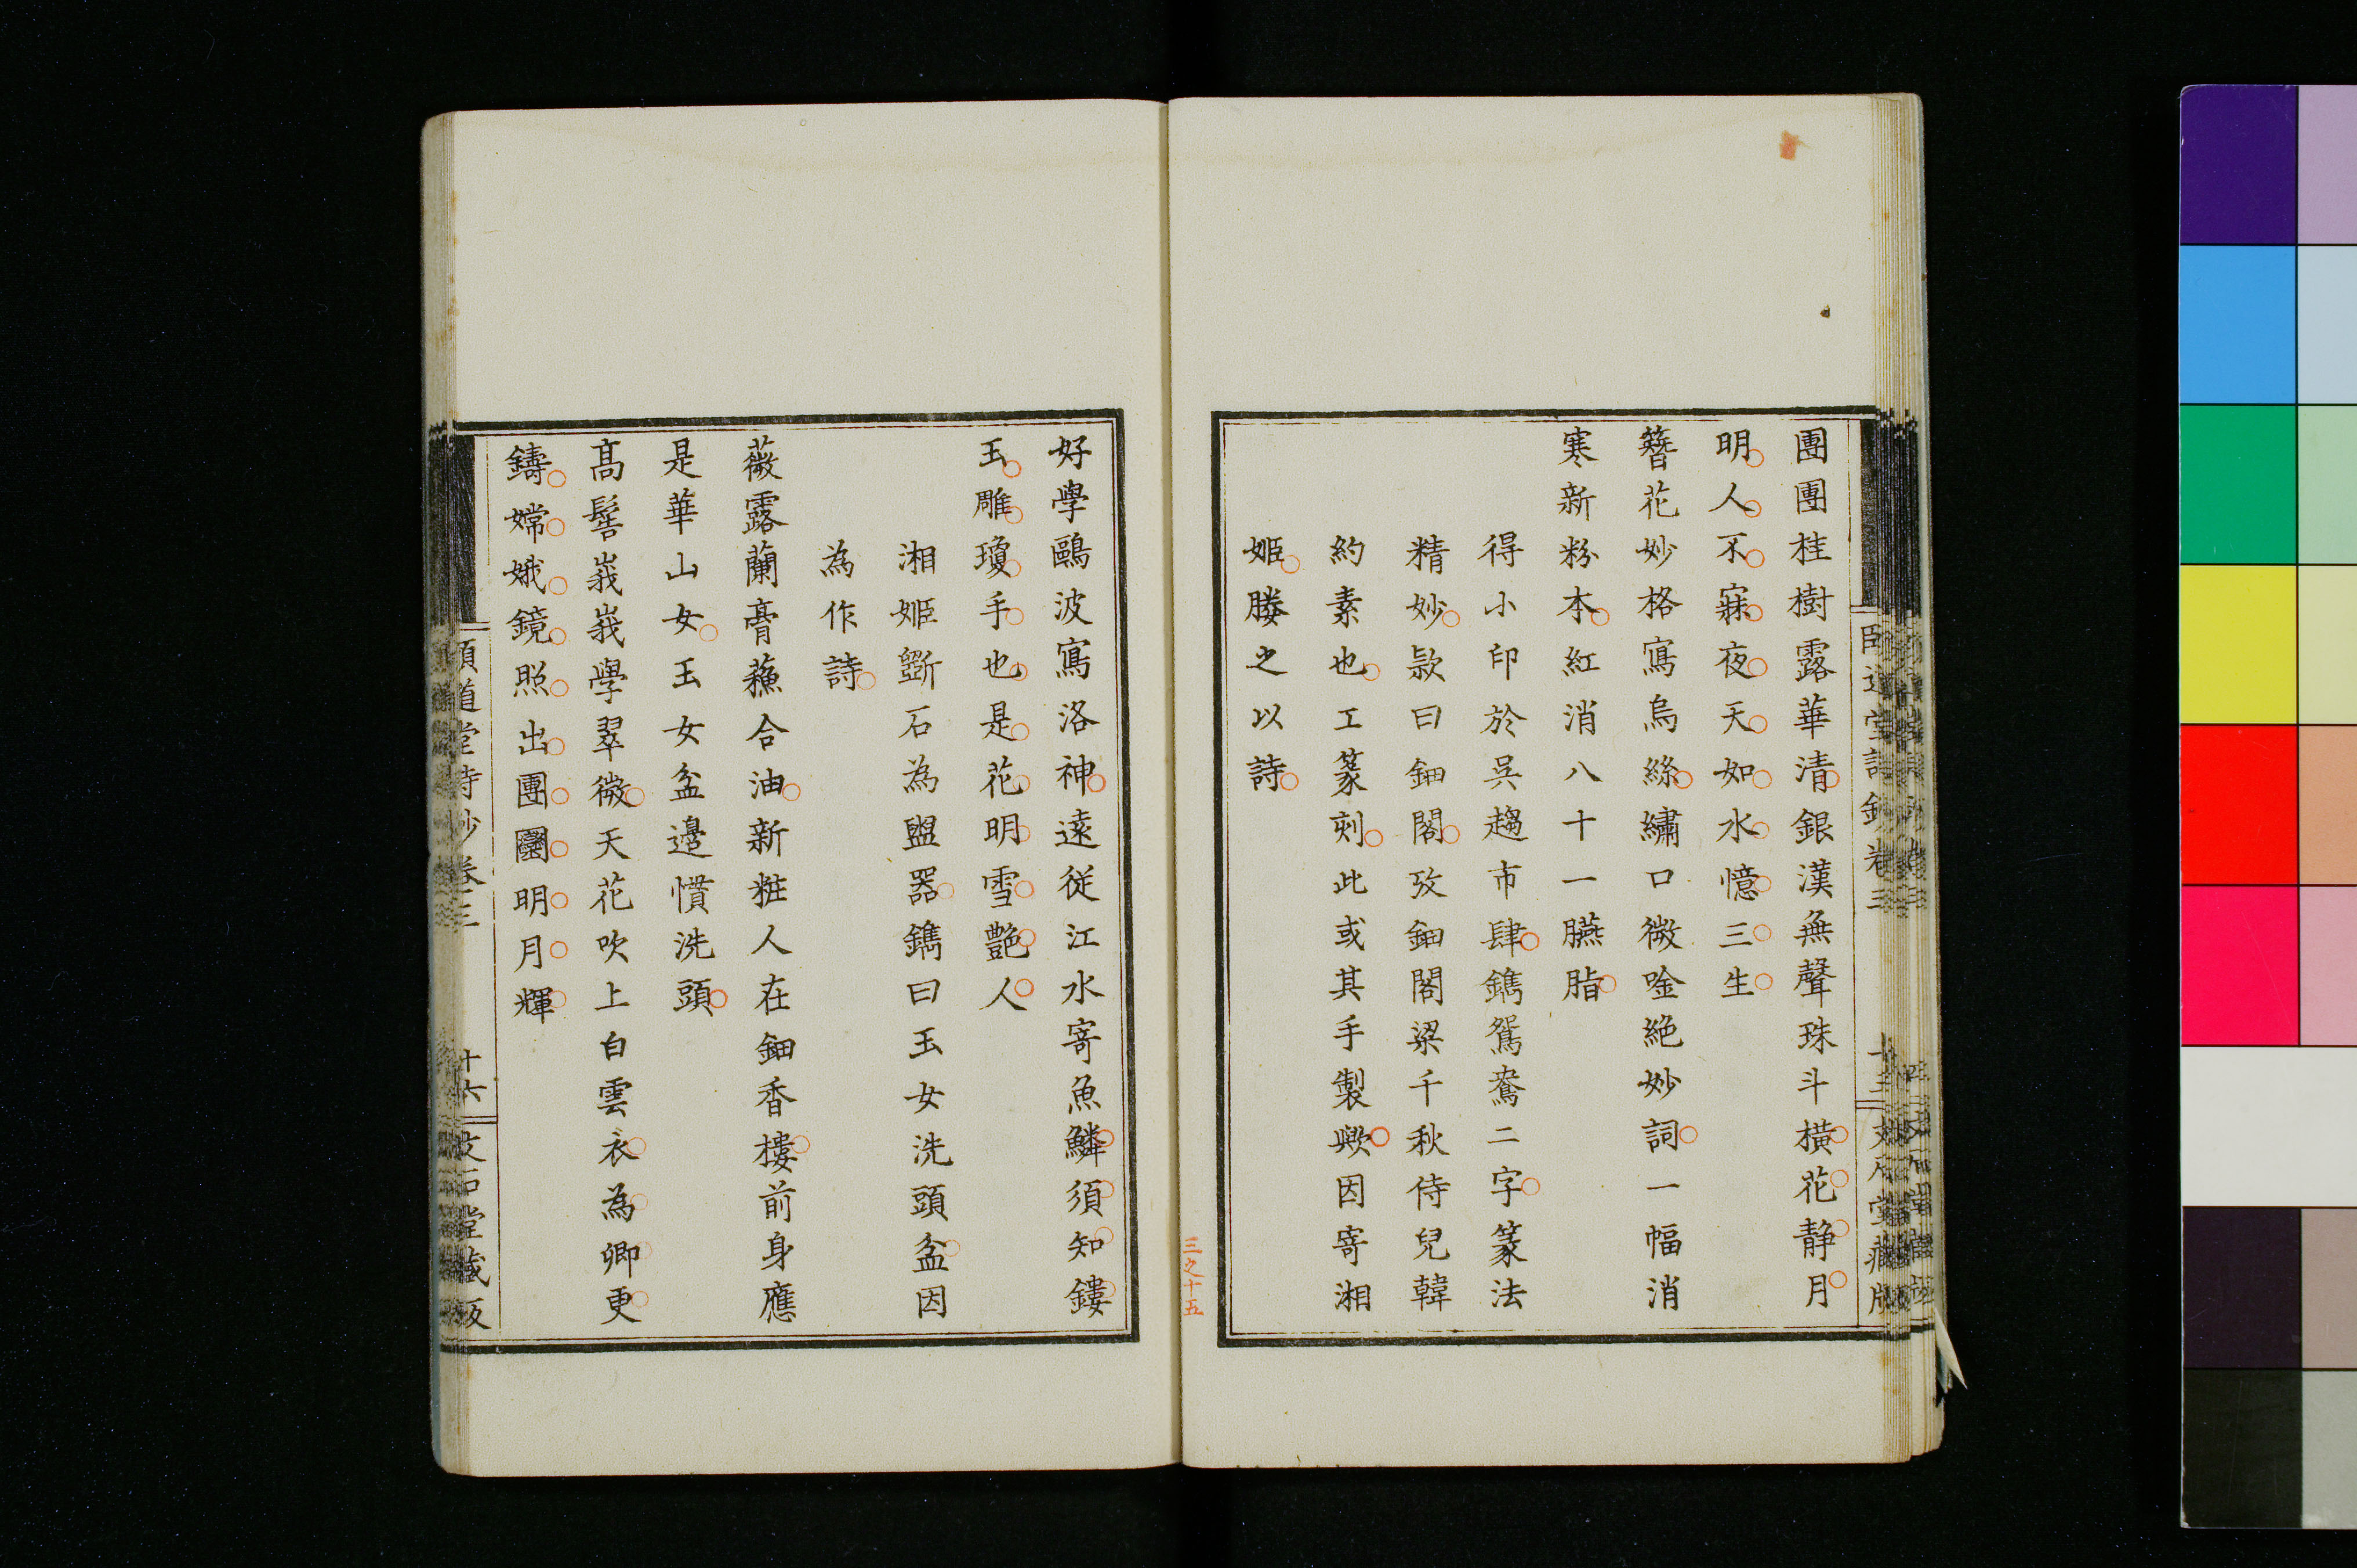 團團桂樹露華清銀漢無聲珠斗橫花静月
明人不寐夜天如水憶三生
簪花妙格寫烏絲繡口微唫絶妙詞一幅消
寒新粉本紅消八十一臙脂
得小印於吳趨市肆鐫鴛鴦二字篆法
精妙款曰鈿閣攷鈿閣梁千秋侍兒韓
約素也工篆刻此或其手製歟因寄湘
姬媵之以詩
三之十五
好學鷗波寫洛神遠從江水寄魚鱗須知鏤
玉雕瓊手也是花明雪艷人
湘姬斲石為盥器鐫曰玉女洗頭盆因
為作詩
薇露蘭膏蘓合油新粧人在鈿香樓前身應
是華山女玉女盆邊慣洗頭
髙髻峩峩學翠微天花吹上白雲衣為卿更
鑄嫦娥鏡照出團圞明月輝
頤道堂詩鈔卷三
十六
文石堂藏版